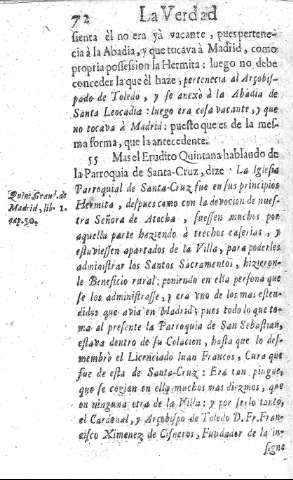 72 La Verdad
sienta èl no era yà vacante, pues pertene-
cia à la Abadia, y que tocava à Madrid, como
propria possession la Hermita: luego no debe
conceder la que èl haze, pertenecia al Arçobis-
pado de Toledo, y se anexò à la Abadia de
Santa Leocadia: luego era cosa vacante, y que
no tocava à Madrid: puesto que es de la mes-
ma forma, que la antecedente.
55 Mas el Erudito Quintana hablando de
la Parroquia de Santa-Cruz, dize: La Iglesia
Parroquial de Santa-Cruz fue en sus principios
Quint. Grand. de
Madrid, lib. 1.
cap. 50.
Hermita, despues como con la devocion de nues-
tra Señora de Atocha, fuessen muchos por
aquella parte haziendo à trechos caserias, y
estuviessen apartados de la Villa, para poderles
administrar los Santos Sacramentos, hizieron-
le Beneficio rural; poniendo en ella persona que
se los administrasse, y era uno de los mas esten-
didos que avia en Madrid; pues todo lo que to-
ma al presente la Parroquia de San Sebastian,
estava dentro de su Colacion, hasta que lo des-
membrò el Licenciado Iuan Francos, Cura que
fue de esta de Santa-Cruz: Era tan pingue,
que se cogian en ella muchos mas diezmos, que
en ninguna otra de la Villa: y por ser lo tanto,
el Cardenal, y Arçobispo de Toledo D. Fr. Fran-
cisco Ximenez de Cisneros, Fundador de la in-
signe